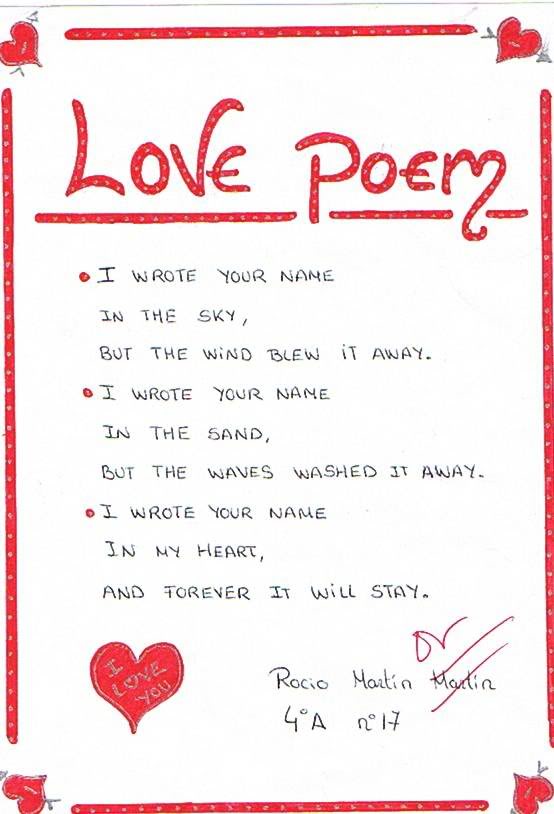 LOVE POEM
• I WROTE YOUR NAME
IN THE SKY,
BUT THE WIND BLEW IT AWAY.
• I WROTE YOUR NAME
IN THE SAND,
BUT THE WAVES WASHED IT AWAY.
• I WROTE YOUR NAME
IN MY HEART,
AND FOREVER IT WILL STAY.
I
LOVE
YOU
Rocio Martín Martín
4ºA nº17